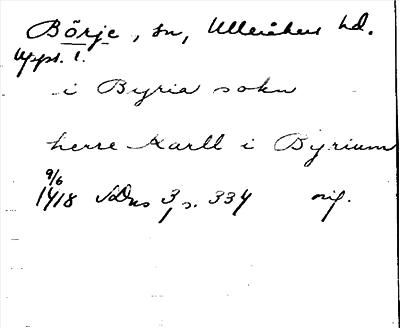 Börje, sn, Ulleråkers hd.
Uppl. 1.
i Byria sokn
herre Karll i Byrium
9/6
1418 SDns 3, s. 334 orig.